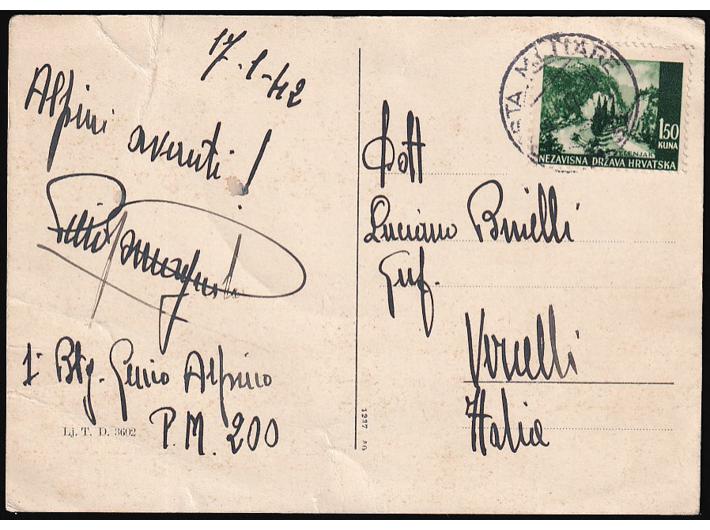 17-1-42
Alpini avanti!
1° Btg. Genio Alpino
P.M. 200
Lj. T. D. 3602
STA MILITARE
1.50
KUNA
NEZAVISNA DRŽAVA HRVATSKA
Dott
Luciano
Vercelli
Italia
1237